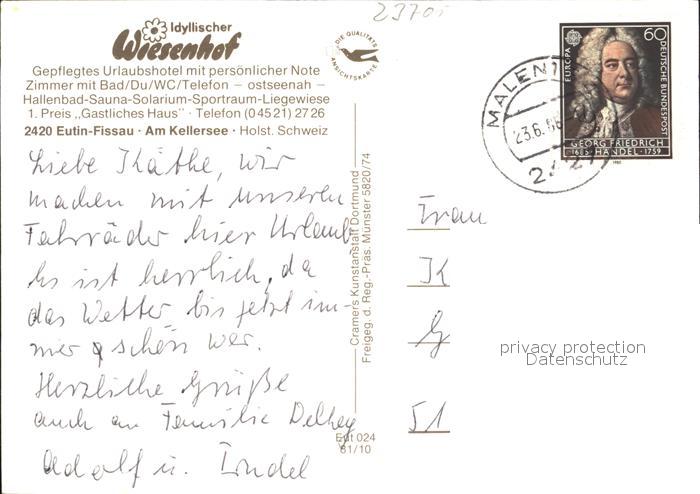 2370.
Idyllischer
Wiesenhof
Gepflegtes Urlaubshotel mit persönlicher Note
Zimmer mit Bad/Du/WC/Telefon – ostseenah –
Hallenbad-Sauna-Solarium-Sportraum-Liegewiese
1. Preis „Gastliches Haus" · Telefon (04521) 2726
2420 Eutin-Fissau · Am Kellersee · Holst. Schweiz
DIE QUALITÄTS
ANSICHTSKARTE
MALENT
23.6.86
242
EUROPA
60
DEUTSCHE BUNDESPOST
GEORG FRIEDRICH
1685 · HÄNDEL · 1759
1985
Liebe Käthe, wir
machen mit unseren
Fahrräder hier Urlaub,
Es ist herrlich, da
das Wetter bis jetzt im-
mer schön war.
Herzliche Grüße
auch an Familie Delhey
Adolf u.
Cramers Kunstanstalt Dortmund
Freigeg. d. Reg.-Präs. Münster 5820/74
Eut 024
81/10
Frau
K
G
51
privacy protection
Datenschutz